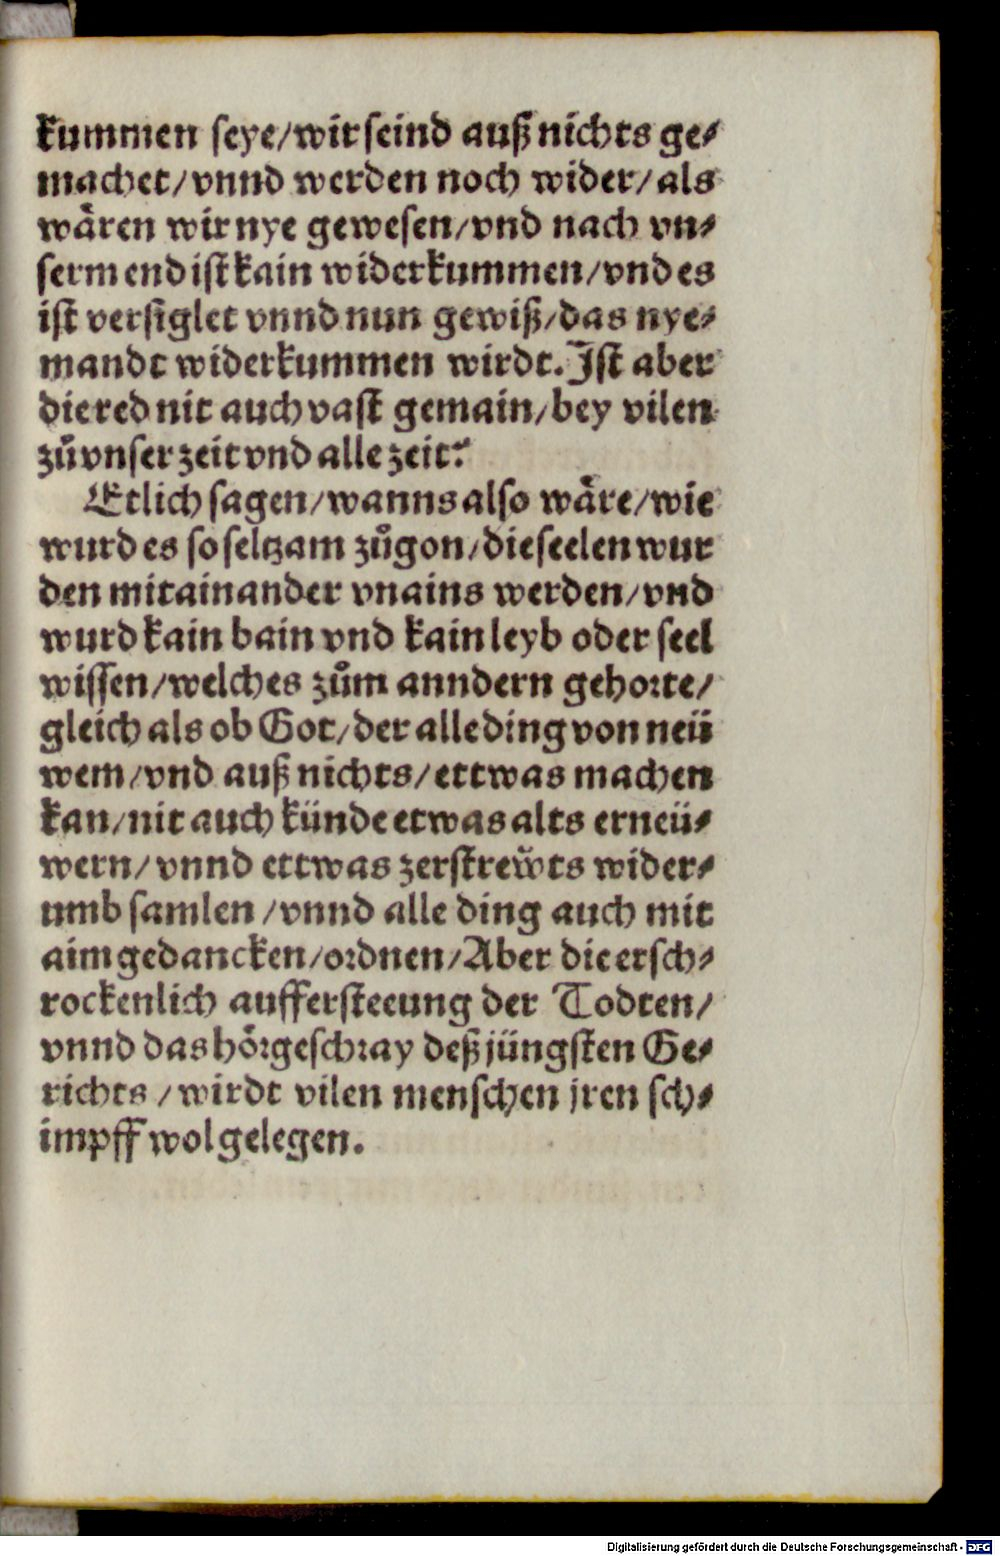 kummen seye/wir seind auß nichts ge⸗
machet/vnnd werden noch wider/als
wåren wir nye gewesen/vnd nach vn⸗
serm end ist kain widerkummen/vnd es
ist versiglet vnnd nun gewiß/das nye⸗
mandt widerkummen wirdt. Ist aber
die red nit auch vast gemain/bey vilen
zů vnser zeit vnd alle zeit?
Etlich sagen/wanns also wåre/wie
wurd es so seltzam zůgon/die seelen wur
den mitainander vnains werden/vnd
wurd kain bain vnd kain leyb oder seel
wissen/welches zům anndern gehorte/
gleich als ob Got/der alle ding von neü
wem/vnd auß nichts/ettwas machen
kan/nit auch künde etwas alts erneü⸗
wern/vnnd ettwas zerstrewts wider⸗
umb samlen/vnnd alle ding auch mit
aim gedancken/ordnen/Aber die ersch⸗
rockenlich auffersteeung der Todten/
vnnd das hörgeschray deß jüngsten Ge⸗
richts/wirdt vilen menschen jren sch⸗
impff wol gelegen.
Digitalisierung gefördert durch die Deutsche Forschungsgemeinschaft - DFG